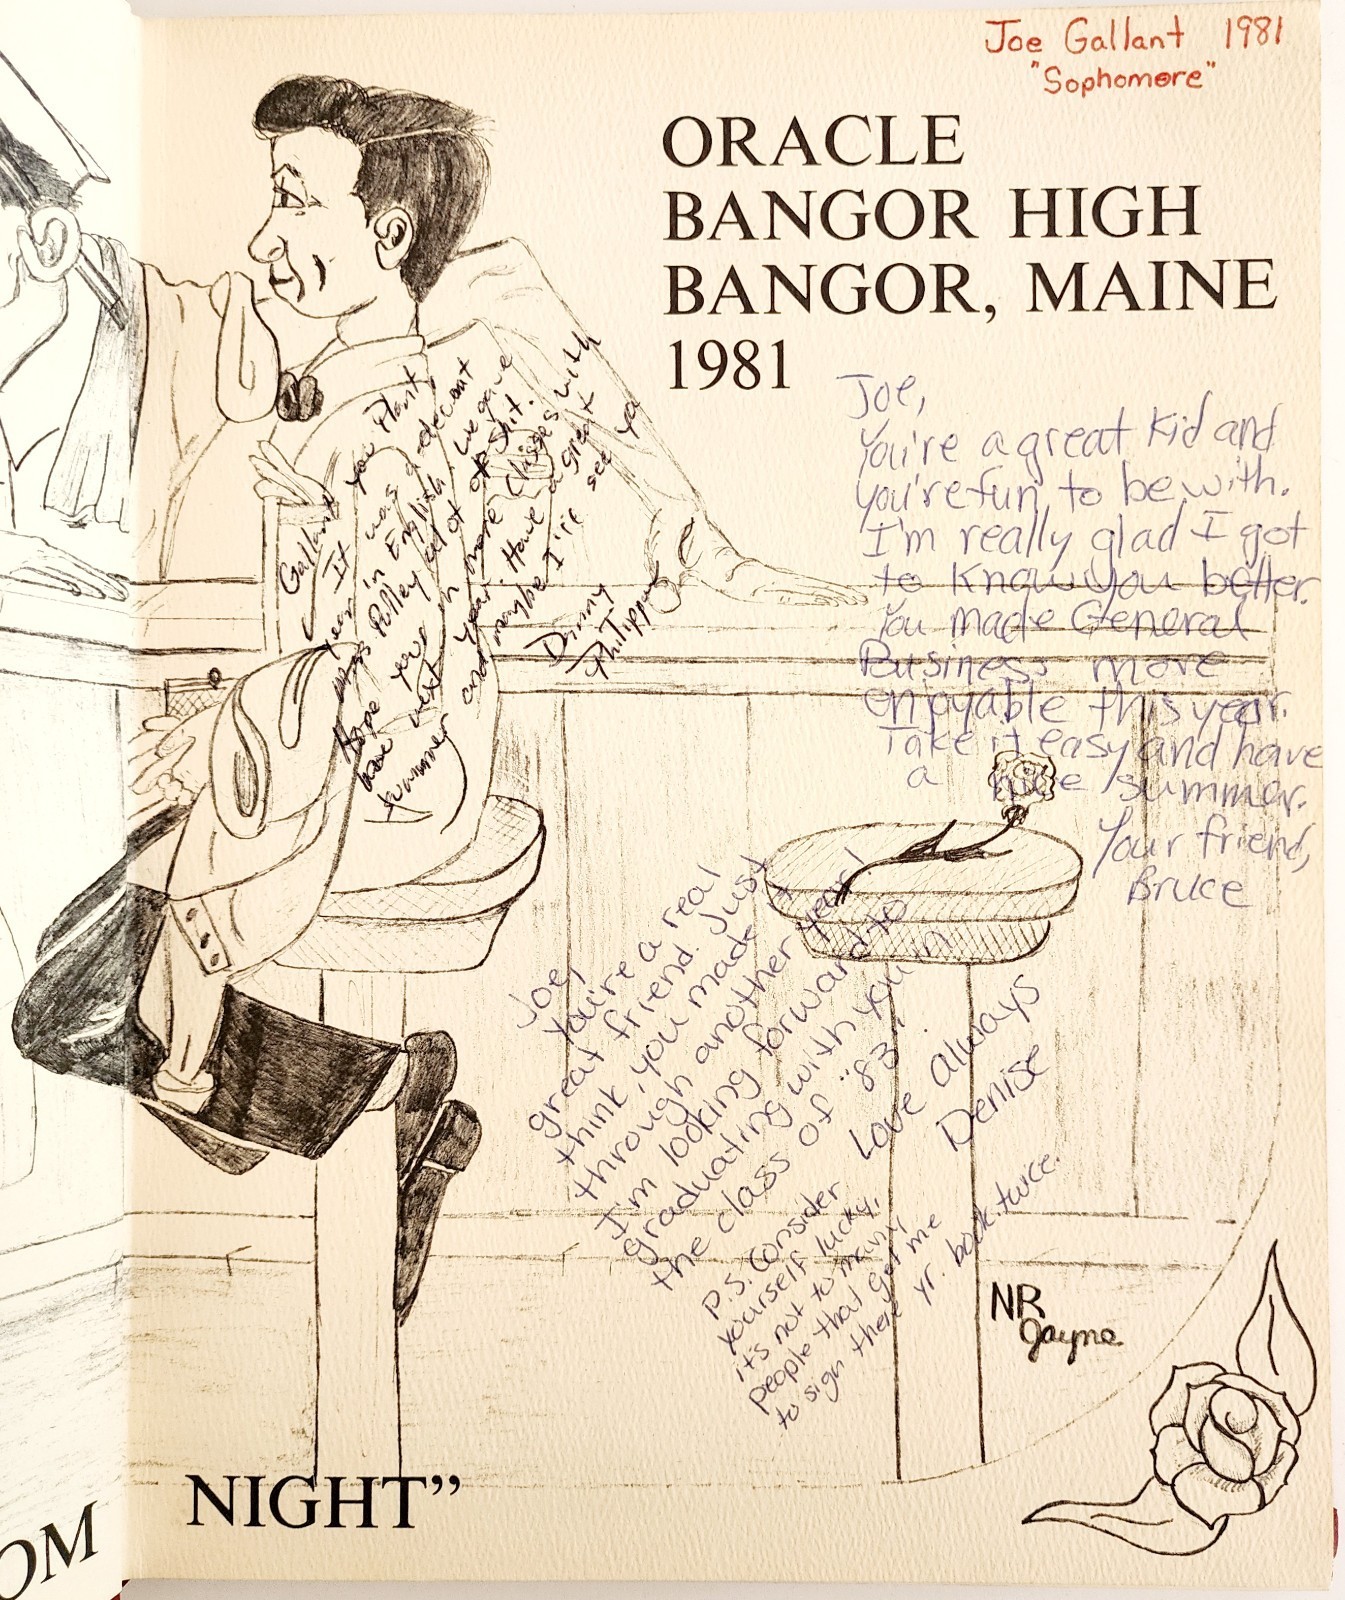 Joe Gallant 1981
"Sophomore"
ORACLE
BANGOR HIGH
BANGOR, MAINE
1981
Joe,
You're a great kid and
you're fun to be with.
I'm really glad I got
to know you better.
You made General
Business more
enjoyable this year.
Take it easy and have
a nice summer.
Your friend,
Bruce
Gallant you
It was a decent
year in English. we gave
Polley of shit.
Hope you in more classes with
have next year. Have a great
summer and maybe I'll see ya
Danny
Joe,
You're a real
great friend. Just
think, you made it
through another year!
I'm looking forward to
graduating with you in
the class of "83".
Love always
Denise
P.S. Consider
yourself lucky,
it's not to many
people that get me
to sign there yr. book twice.
NR
Jayne
NIGHT"
OM